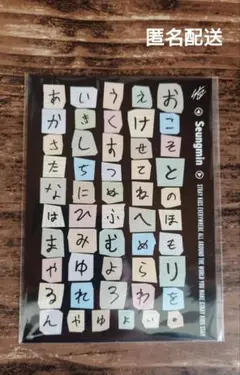 匿名配送
あいうえお
かきくけこ
さしすせそ
たちつてと
なにぬねの
はひふへほ
まみむめも
やゆよらり
るれろわを
んゃゅょっ。
Seungmin
STRAY KIDS EVERYWHERE ALL AROUND THE WORLD YOU MAKE STRAY KIDS STAY